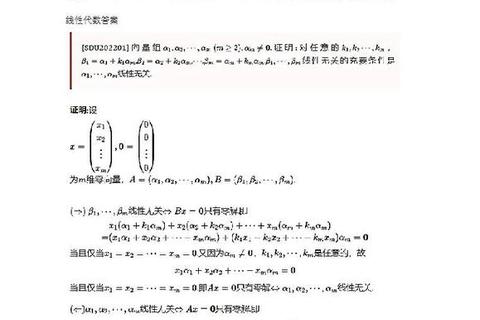 线性代数答案
[SDU202201] 向量组 α₁,α₂,⋯,αₘ (m ≥ 2), αₘ ≠ 0. 证明: 对任意的 k₁,k₂,⋯,kₘ,
β₁ = α₁ + k₁αₘ, β₂ = α₂ + k₂αₘ,⋯,βₘ = αₘ + kₘαₘ, β₁,⋯,βₘ 线性无关的充要条件是
α₁,⋯,αₘ 线性无关.
证明: 设
x = (x₁ x₂ ⋮ xₘ), 0 = (0 0 ⋮ 0)
为m维零向量, A = (α₁,α₂,⋯,αₘ), B = (β₁,β₂,⋯,βₘ).
(⇒) β₁,⋯,βₘ线性无关⇔ Bx = 0只有零解即
x₁(α₁ + k₁αₘ) + x₂(α₂ + k₂αₘ) + ⋯ + xₘ(αₘ + kₘαₘ)
=(x₁α₁ + x₂α₂ + ⋯ xₘαₘ) + (k₁x₁ k₂x₂ + ⋯ kₘxₘ)αₘ = 0
当且仅当x₁ = x₂ = ⋯ = xₘ = 0 又因为αₘ ≠ 0, k₁,k₂,⋯,kₘ是任意的, 故
x₁α₁ + x₂α₂ + ⋯ xₘαₘ = 0
当且仅当x₁ = x₂ = ⋯ = xₘ = 0 即Ax = 0只有零解⇔ α₁,α₂,⋯,αₘ线性无关.
(⇐)α₁,α₂,⋯,αₘ线性无关⇔ Ax = 0只有零解即